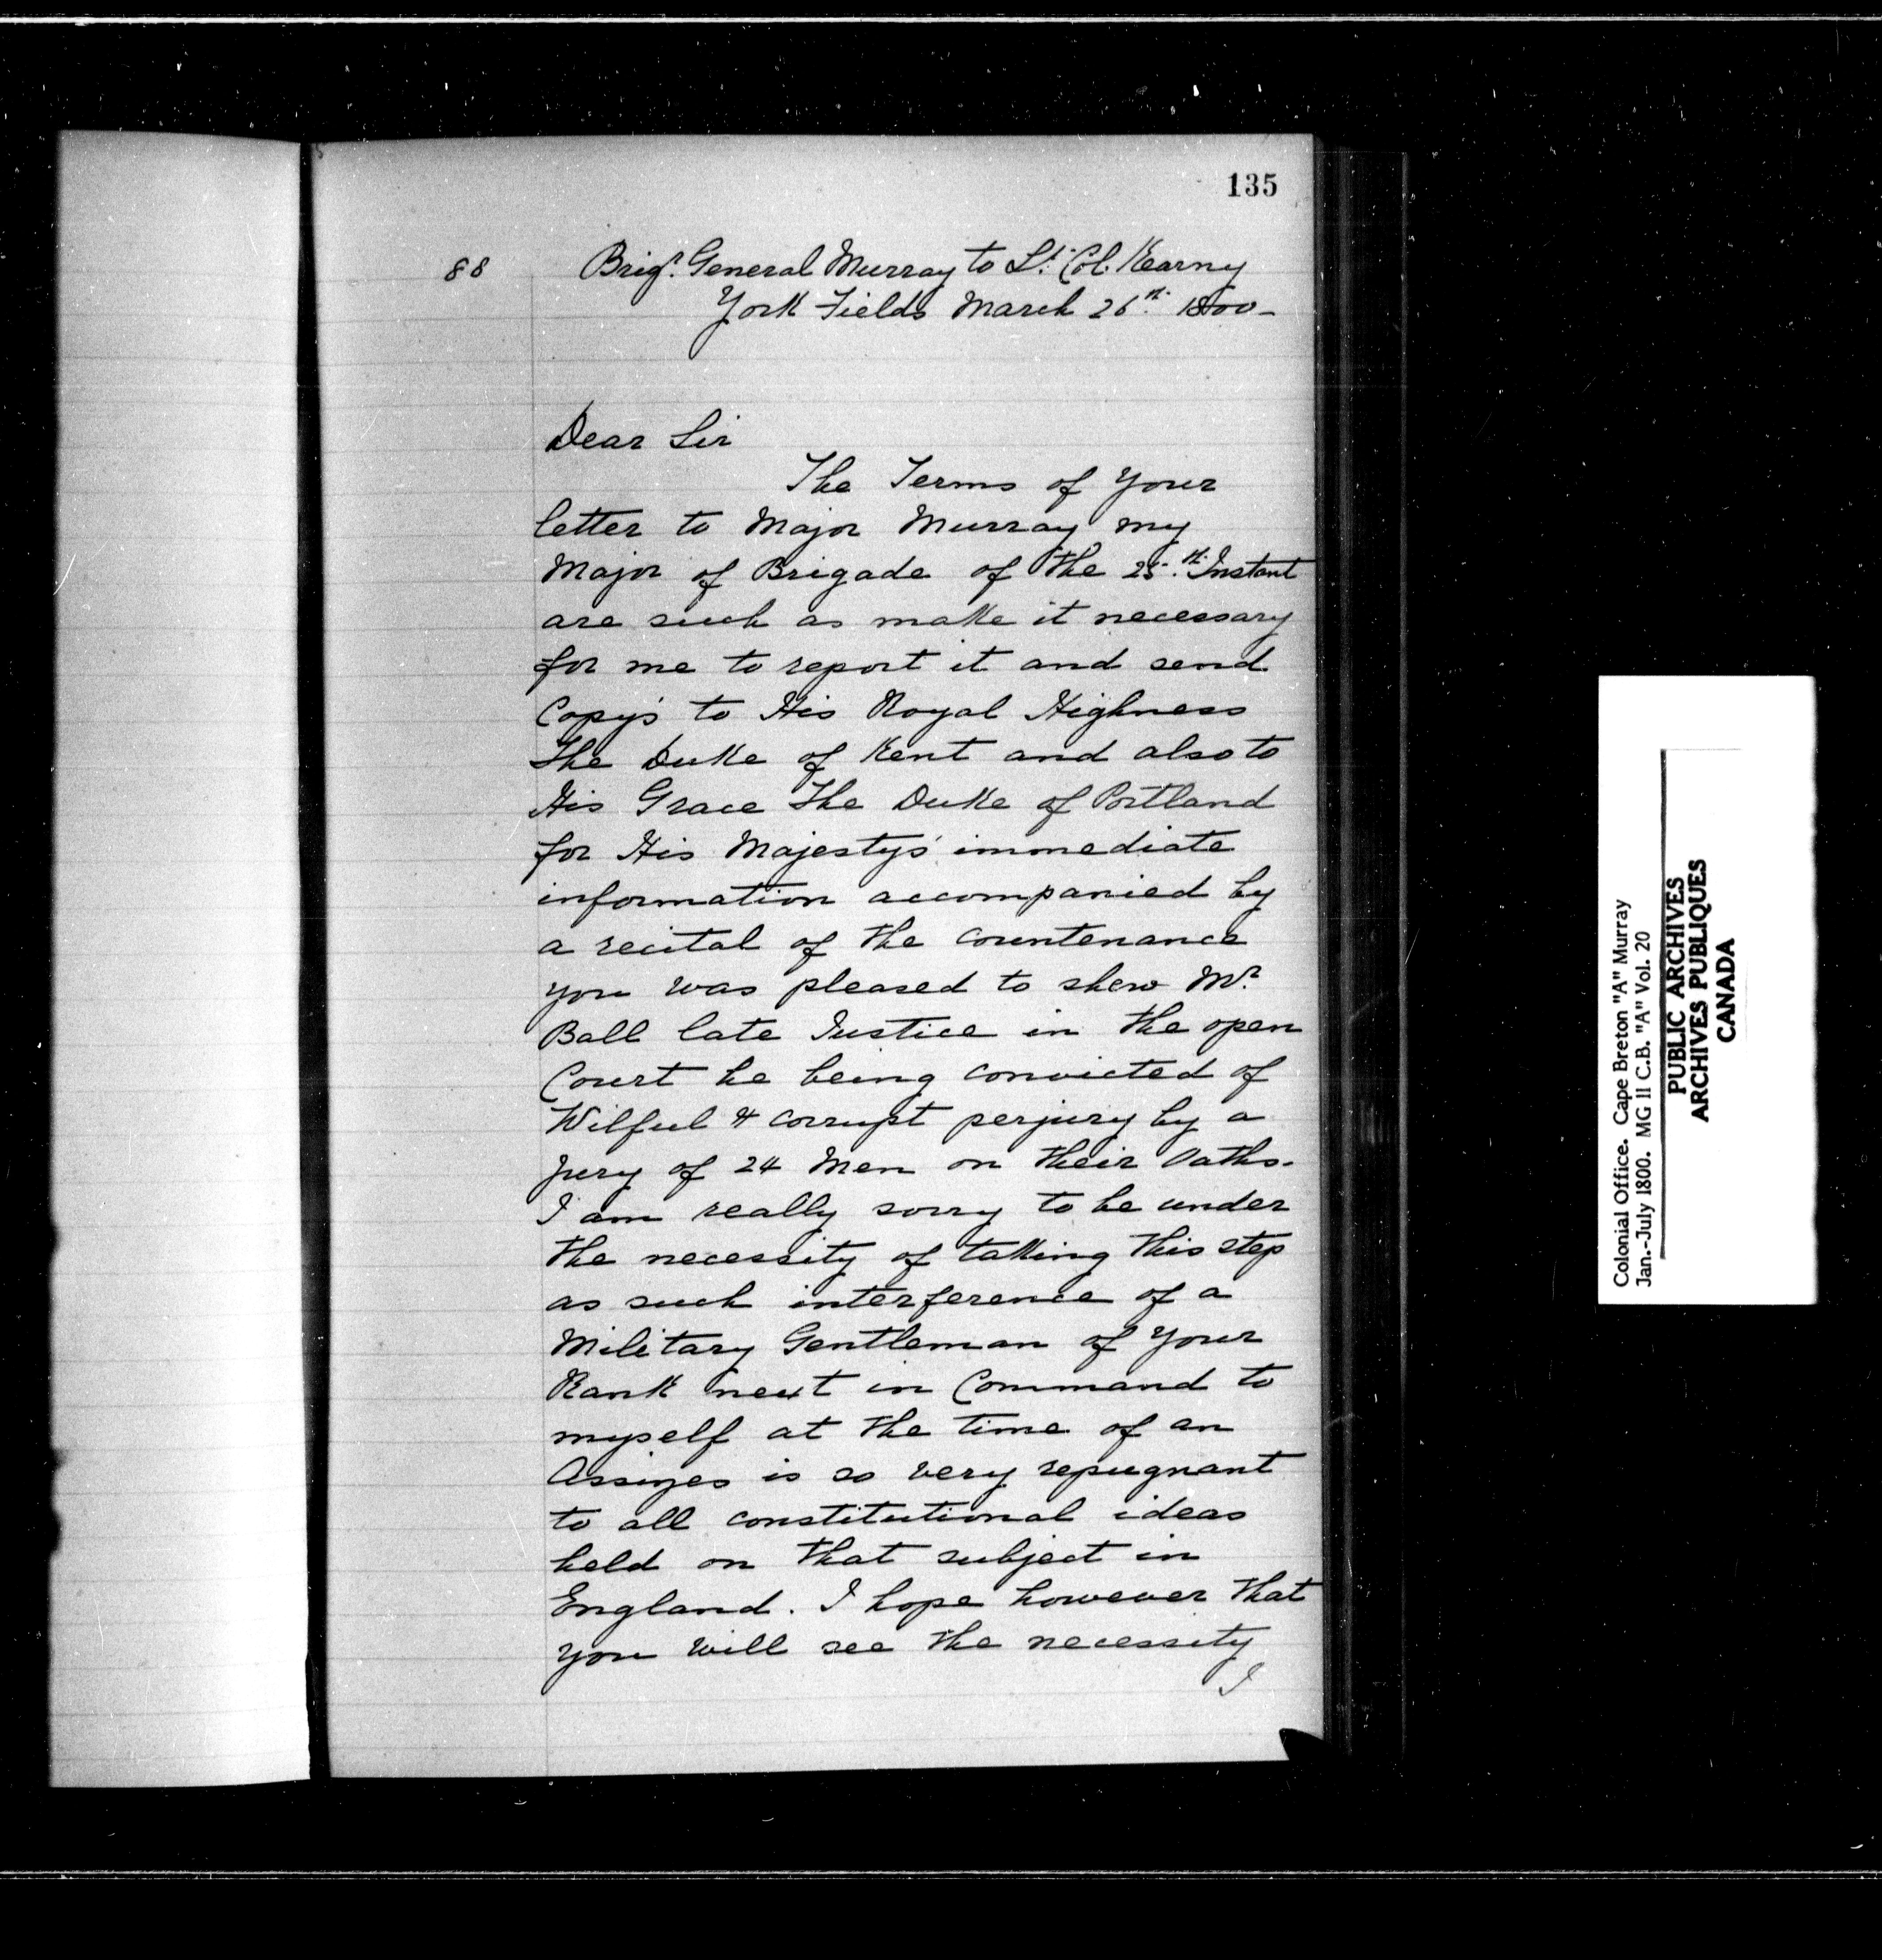 135
88 Brigr. General Murray to Lt. Col. Kearny
York Fields March 26th. 1800-
Dear Sir
The Terms of your
letter to Major Murray my
Major of Brigade of the 25th. Instant
are such as make it necessary
for me to report it and send
Copy's to His Royal Highness
The Duke of Kent and also to
His Grace The Duke of Portland
for His Majestys' immediate
information accompanied by
a recital of the countenance
you was pleased to shew Mr.
Ball late Justice in the open
Court he being convicted of
Wilful & corrupt perjury by a
jury of 24 Men on their Oaths.
I am really sorry to be under
the necessity of taking this step
as such interference of a
Military Gentleman of your
Rank next in Command to
myself at the time of an
Assizes is so very repugnant
to all constitutional ideas
held on that subject in
England. I hope however that
you will see the necessity
I
Colonial Office. Cape Breton "A" Murray
Jan.-July 1800. MG 11 C.B. "A" Vol. 20
PUBLIC ARCHIVES
ARCHIVES PUBLIQUES
CANADA